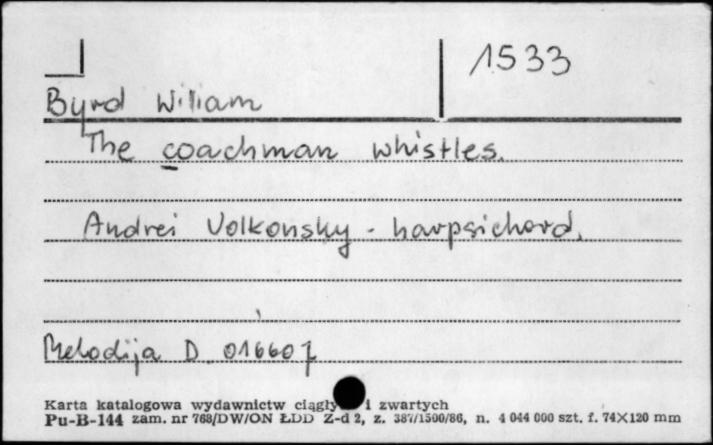 1533
Byrd Wiliam
The coachman whistles.
Andrei Volkonsky - harpsichord.
Melodija D 016607
Karta katalogowa wydawnictw i zwartych
Pu-B-144 zam. nr 768/DW/ON ŁDD Z-d 2, z. 387/1500/86, n. 4 044 000 szt. f. 74×120 mm